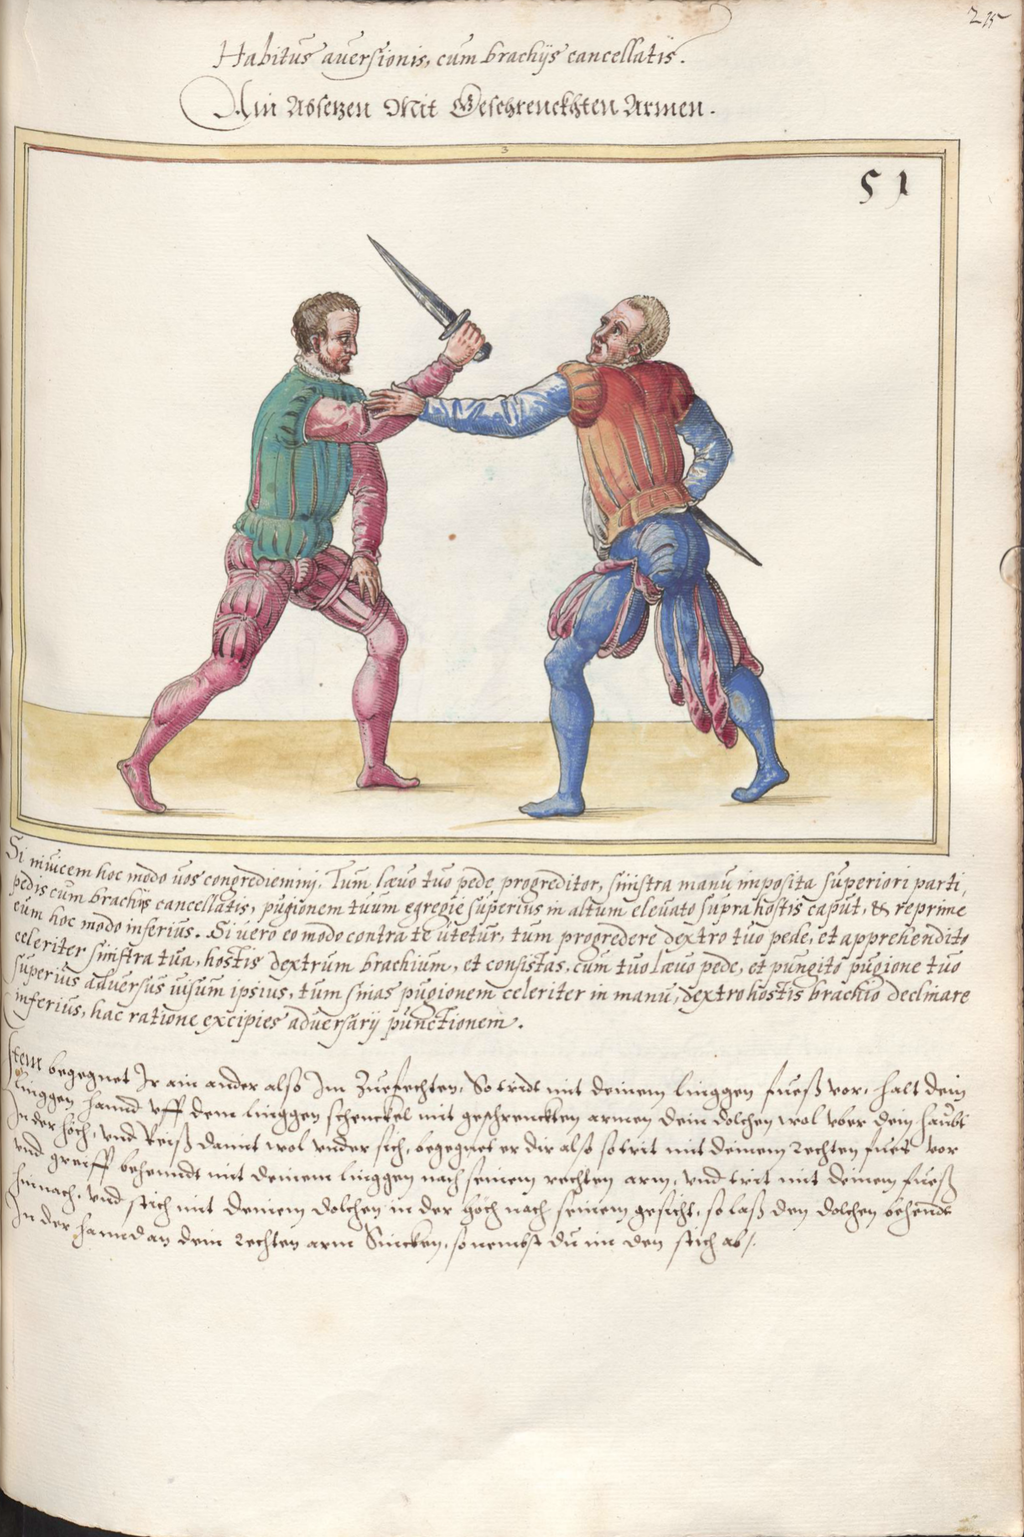 Habitus auersionis, cum brachijs cancellatis.
Ain Absetzen Mit Geschrenckhten Armen.
3
51
Si inuicem hoc modo uos congrediemini. Tum læuo tuo pede progreditor, sinistra manu imposita superiori parti,
pedis cum brachijs cancellatis, pugionem tuum egregie superius in altum eleuato supra hostis caput, & reprime
eum hoc modo inferius. Si uero eo modo contra te utetur, tum progredere dextro tuo pede, et apprehendito
celeriter sinistra tua, hostis dextrum brachium, et consistas, cum tuo læuo pede, et pungito pugione tuo
superius aduersus uisum ipsius, tum sinas pugionem celeriter in manu, dextro hostis brachio declinare
inferius, hac ratione excipies aduersarij punctionem.
Item begegnet Ir ain ander also Im Zuefechten, So tridt mit deinem linggen fuesß vor, halt dein
linggen hannd vff dem linggen schenckel mit geschrenckten armen dein dolchen wol vber dein haubt
In der höch, vnd Reiß damit wol vnder sich, begegnet er dir also so trit mit deinem rechten fues vor
vnd greiff behenndt mit deinem linggen nach seinem rechten arm, vnd trit mit deinem fuesß
hinnach, vnd stich mit deinem dolchen in der höch nach seinem gesicht, so laß den dolchen behendt
In der hannd an dein rechten arm Sincken, so nembst du im den stich ab.